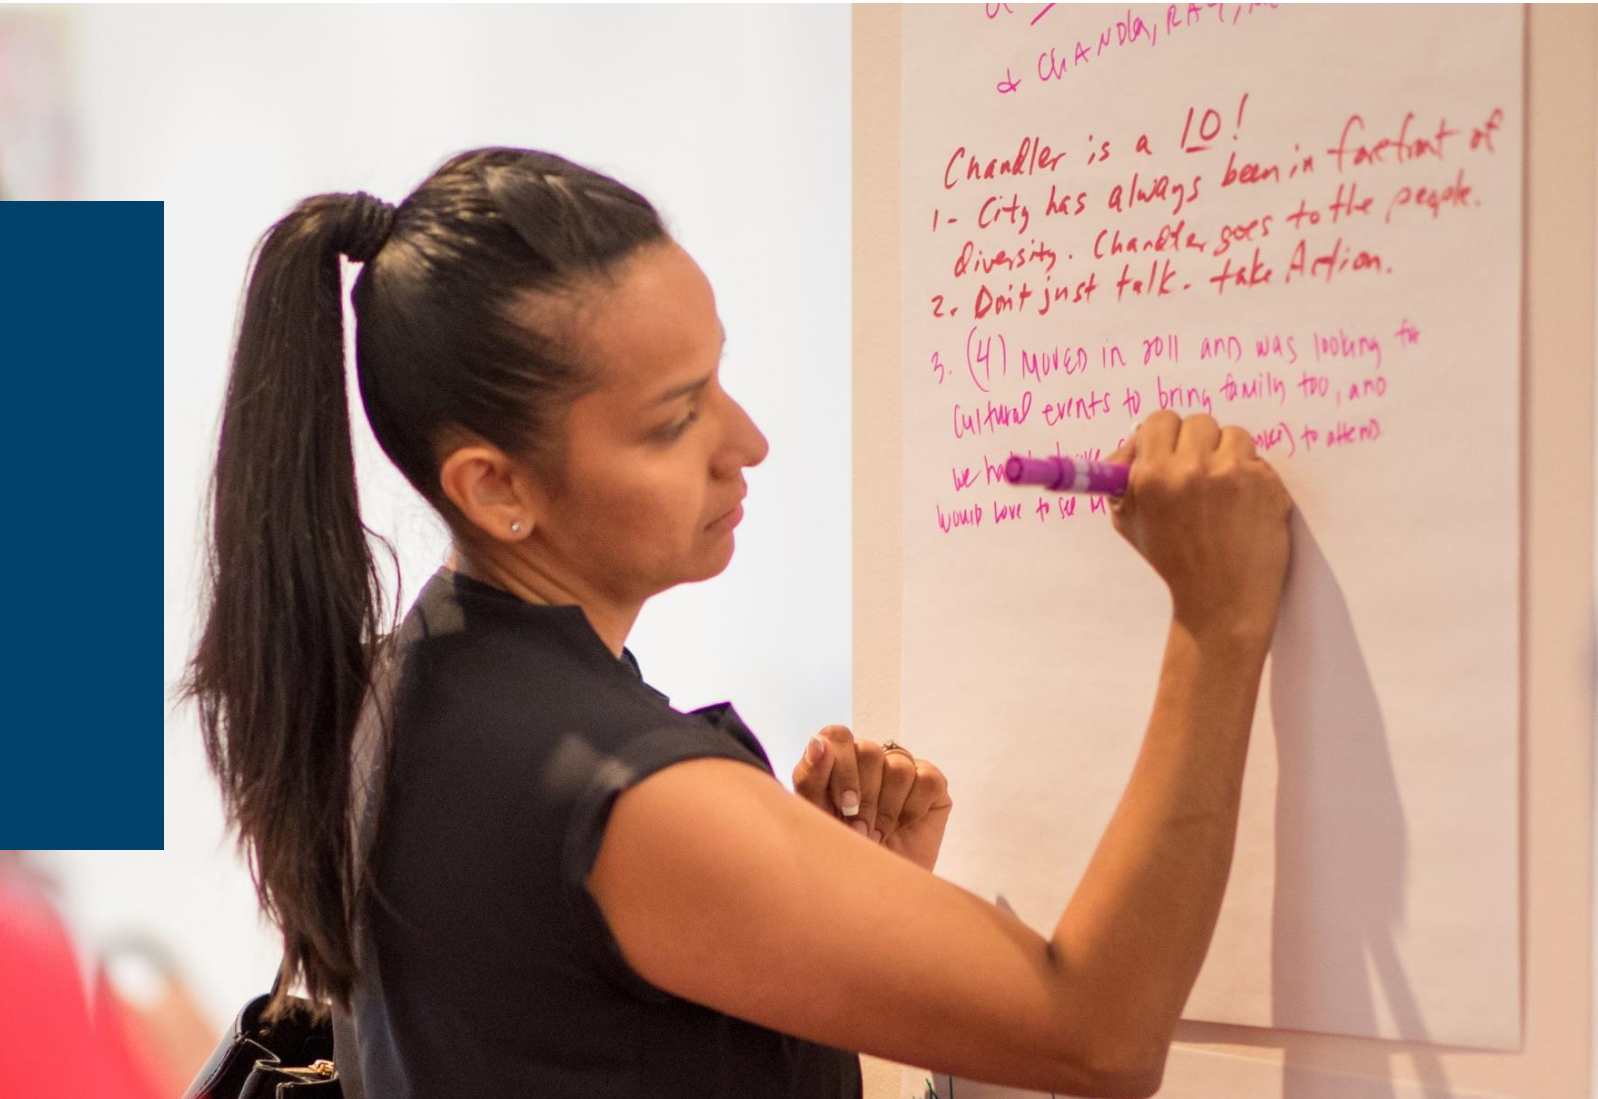 & CHANDLER, RAY,
Chandler is a 10!
1- City has always been in forefront of
diversity. Chandler goes to the people.
2. Don't just talk. take Action.
3. (4) MOVED in 2011 AND was looking for
Cultural events to bring family too, AND
we had to to attend
WOULD LOVE to see